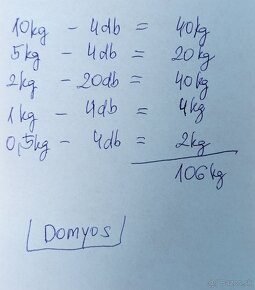 10kg - 4db = 40kg
5kg - 4db = 20kg
2kg - 20db = 40kg
1kg - 4db = 4kg
0,5kg - 4db = 2kg
106kg
DOMYOS